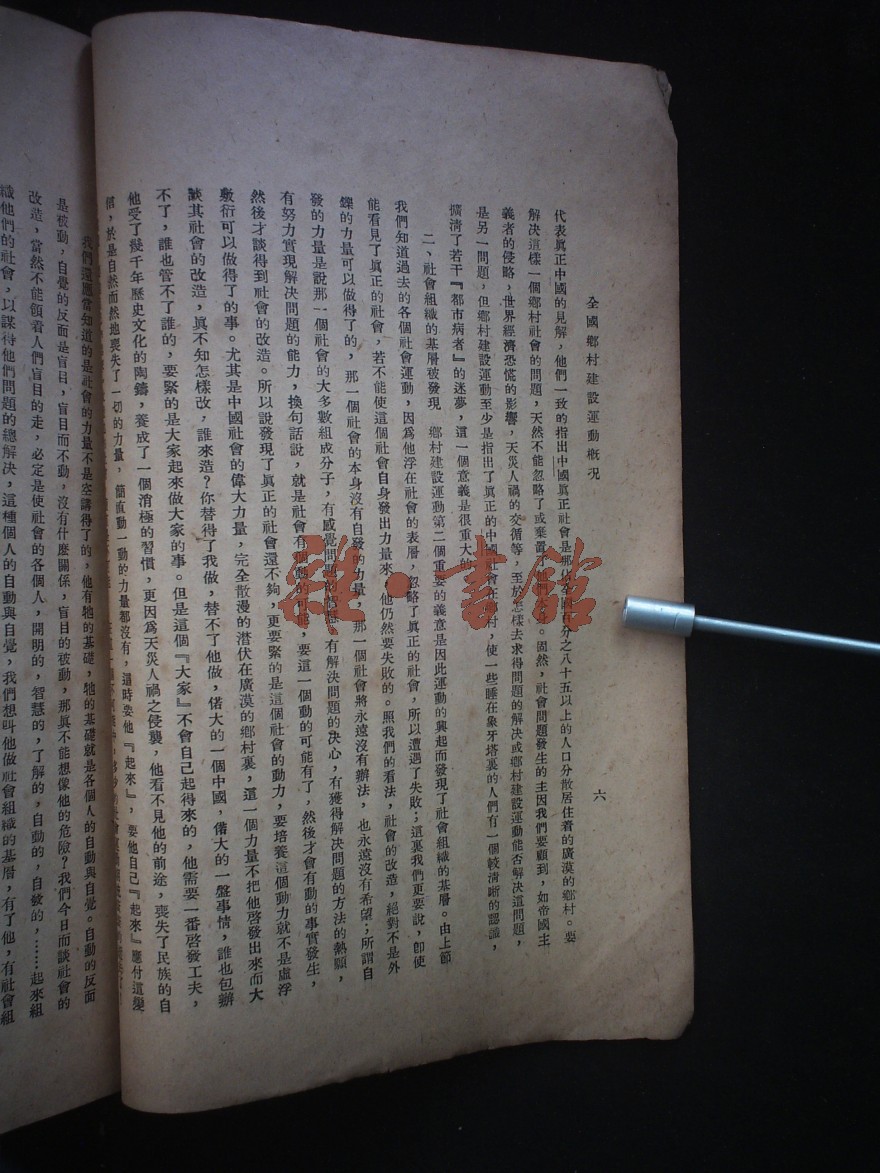 全國鄉村建設運動概况
六
代表眞正中國的見解，他們一致的指出中國眞正社會是那佔全國百分之八十五以上的人口分散居住着的廣漠的鄉村。要
解决這樣一個鄉村社會的問題，天然不能忽略了或棄置了他們自身。固然，社會問題發生的主因我們要顧到，如帝國主
義者的侵略，世界經濟恐慌的影響，天災人禍的交循等，至於怎樣去求得問題的解决或鄉村建設運動能否解决這問題，
是另一問題，但鄉村建設運動至少是指出了眞正的中國社會在鄉村，使一些睡在象牙塔裏的人們有一個較清晰的認識，
擴清了若干『都市病者』的迷夢，這一個意義是很重大的。
二、社會組織的基層被發現　鄉村建設運動第二個重要的義意是因此運動的興起而發現了社會組織的基層。由上節
我們知道過去的各個社會運動，因爲他浮在社會的表層，忽略了眞正的社會，所以遭遇了失敗；這裏我們更要說，卽使
能看見了眞正的社會，若不能使這個社會自身發出力量來，他仍然要失敗的。照我們的看法，社會的改造，絕對不是外
鑠的力量可以做得了的，那一個社會的本身沒有自發的力量，那一個社會將永遠沒有辦法，也永遠沒有希望；所謂自
發的力量是說那一個社會的大多數組成分子，有感覺問題的，有解决問題的决心，有獲得解决問題的方法的熱願，
有努力實現解决問題的能力，換句話說，就是社會有個動的可能，要這一個動的可能有了，然後才會有動的事實發生，
然後才談得到社會的改造。所以說發現了眞正的社會還不夠，更要緊的是這個社會的動力，要培養這個動力就不是虛浮
敷衍可以做得了的事。尤其是中國社會的偉大力量，完全散漫的潛伏在廣漠的鄉村裏，這一個力量不把他啓發出來而大
談其社會的改造，眞不知怎樣改，誰來造？你替得了我做，替不了他做，偌大的一個中國，偌大的一盤事情，誰也包辦
不了，誰也管不了誰的，要緊的是大家起來做大家的事。但是這個『大家』不會自己起得來的，他需要一番啓發工夫，
他受了幾千年歷史文化的陶鑄，養成了一個消極的習慣，更因爲天災人禍之侵襲，他看不見他的前途，喪失了民族的自
信，於是自然而然地喪失了一切的力量，簡直動一動的力量都沒有，這時要他『起來』，要他自己『起來』應付這變
我們還應當知道的是社會的力量不是空講得了的，他有牠的基礎，牠的基礎就是各個人的自動與自覺。自動的反面
是被動，自覺的反面是盲目，盲目而不動，沒有什麼關係，盲目的被動，那眞不能想像他的危險？我們今日而談社會的
改造，當然不能領着人們盲目的走，必定是使社會的各個人，開明的，智慧的，了解的，自動的，自發的，……起來組
織他們的社會，以謀得他們問題的總解决，這種個人的自動與自覺，我們想叫他做社會組織的基層，有了他，有社會組
雜·書館